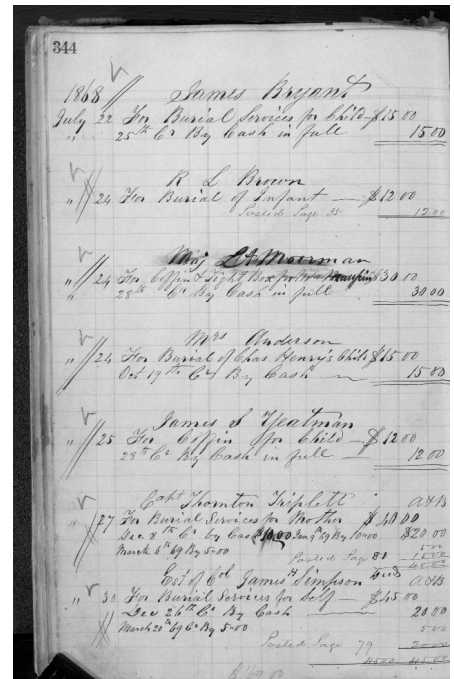 344
1868 // James Bryant
July 22 For Burial Services for Child $15.00
" 25th Cr By Cash in full 15.00
R L Brown
" // 24 For Burial of Infant — $12.00
Posted Page 35 12.00
Maj Moorman
" // 24 For Coffin & Tight Box $30.00
" 28th Cr By Cash in full 30.00
Mrs Anderson
" // 24 For Burial of Chas Henry's Child $15.00
Oct 19th Cr By Cash — 15.00
James S Yeatman
" // 25 For Coffin for Child — $12.00
28th Cr By Cash in full — 12.00
Capt Thornton Triplett A&B
" // 27 For Burial Services for Mother $40.00
Dec 8th Cr by Cash $10.00 Jany 9th 69 By 10.00 $20.00
March 5th 69 By 5.00 5.00
Posted Page 81 15.00
40.00
Est of Col James H Simpson Decd A&B
" // 30 For Burial Services for Self — $45.00
Dec 26th Cr By Cash 20.00
March 20th 69 Cr By 5.00 5.00
Posted Page 79 20.00
45.00 45.00